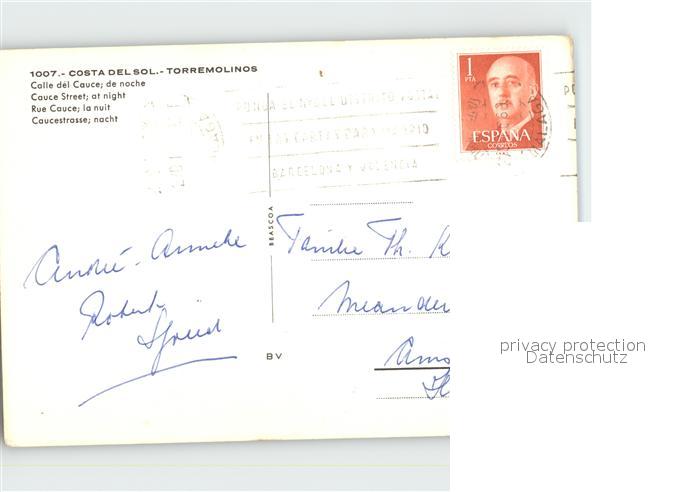 1007.- COSTA DEL SOL.- TORREMOLINOS
Calle del Cauce; de noche
Cauce Street; at night
Rue Cauce; la nuit
Caucestrasse; nacht
1
PTA
ESPAÑA
CORREOS
PONGA EL Nº DEL DISTRITO POSTAL
EN LAS CARTAS PARA MADRID
BARCELONA Y VALENCIA
MALAGA
BEASCOA
André - Anneke
Robert
Familie Th. K
Meander
Ams
BV
privacy protection
Datenschutz